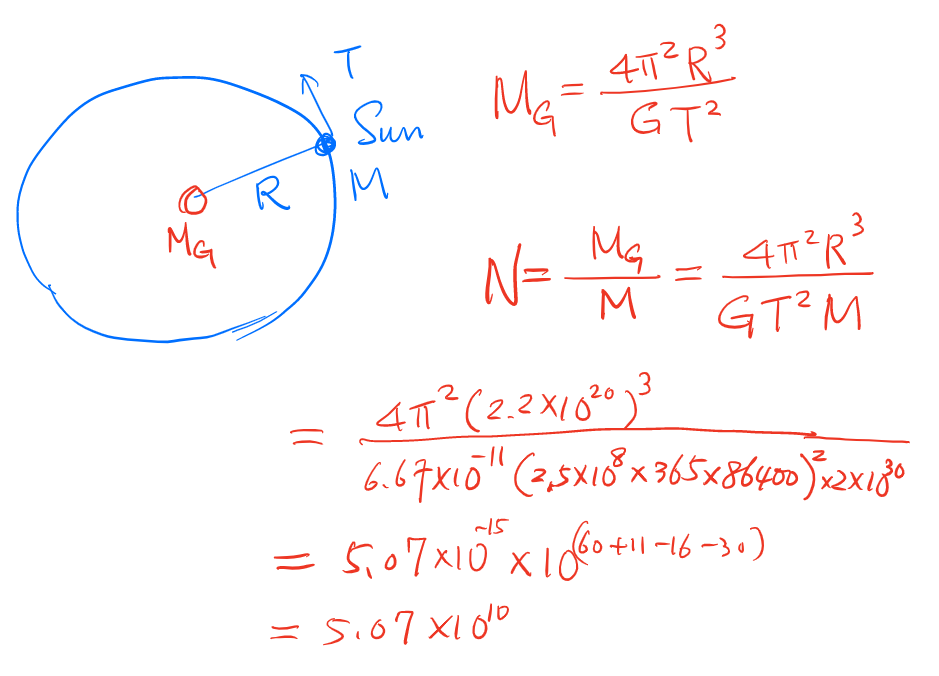 T
Sun
R
M
M_G
M_G = 4π²R³ / GT²
N = M_G / M = 4π²R³ / GT²M
= 4π²(2.2×10²⁰)³ / 6.67×10⁻¹¹(2.5×10⁸×365×86400)²×2×10³⁰
= 5.07×10⁻¹⁵×10⁽⁶⁰⁺¹¹⁻¹⁶⁻³⁰⁾
= 5.07×10¹⁰